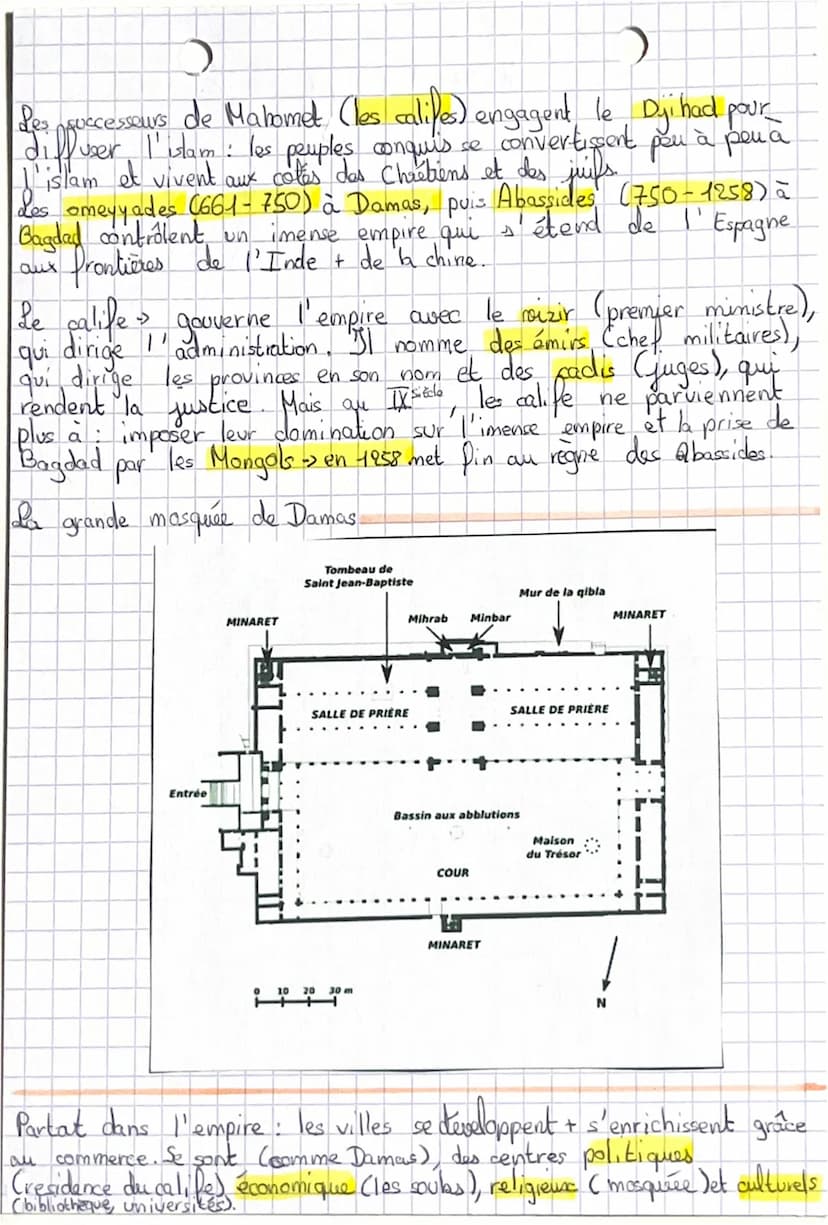 Les successeurs de Mahomet (les califes) engagent le Djihad pour
diffuser l'islam : les peuples conquis se convertissent peu à peu à
l'islam et vivent aux cotés des Chrétiens et des juifs.
Les omeyyades (661-750) à Damas, puis Abassides (750-1258) à
Bagdad contrôlent un imense empire qui s'étend de l'Espagne
aux frontières de l'Inde + de la chine.
Le calife → gouverne l'empire avec le vizir (premier ministre),
qui dirige l'administration. Il nomme des émirs (chef militaires),
qui dirige les provinces en son nom et des cadis (juges), qui
rendent la justice. Mais au IX siècle, les calife ne parviennent
plus à : imposer leur domination sur l'imense empire et la prise de
Bagdad par les Mongols → en 1258 met fin au règne des Abassides.
La grande mosquée de Damas
Tombeau de
Saint Jean-Baptiste
Mur de la qibla
MINARET
Mihrab
Minbar
MINARET
SALLE DE PRIÈRE
SALLE DE PRIÈRE
Entrée
Bassin aux abblutions
Maison
du Trésor
COUR
MINARET
0 10 20 30 m
N
Partat dans l'empire : les villes se développent + s'enrichissent grâce
au commerce. Se sont (comme Damas), des centres politiques
(residence du calife), économique (les souks), religieux (mosquée) et culturels
(bibliothèque, universités).